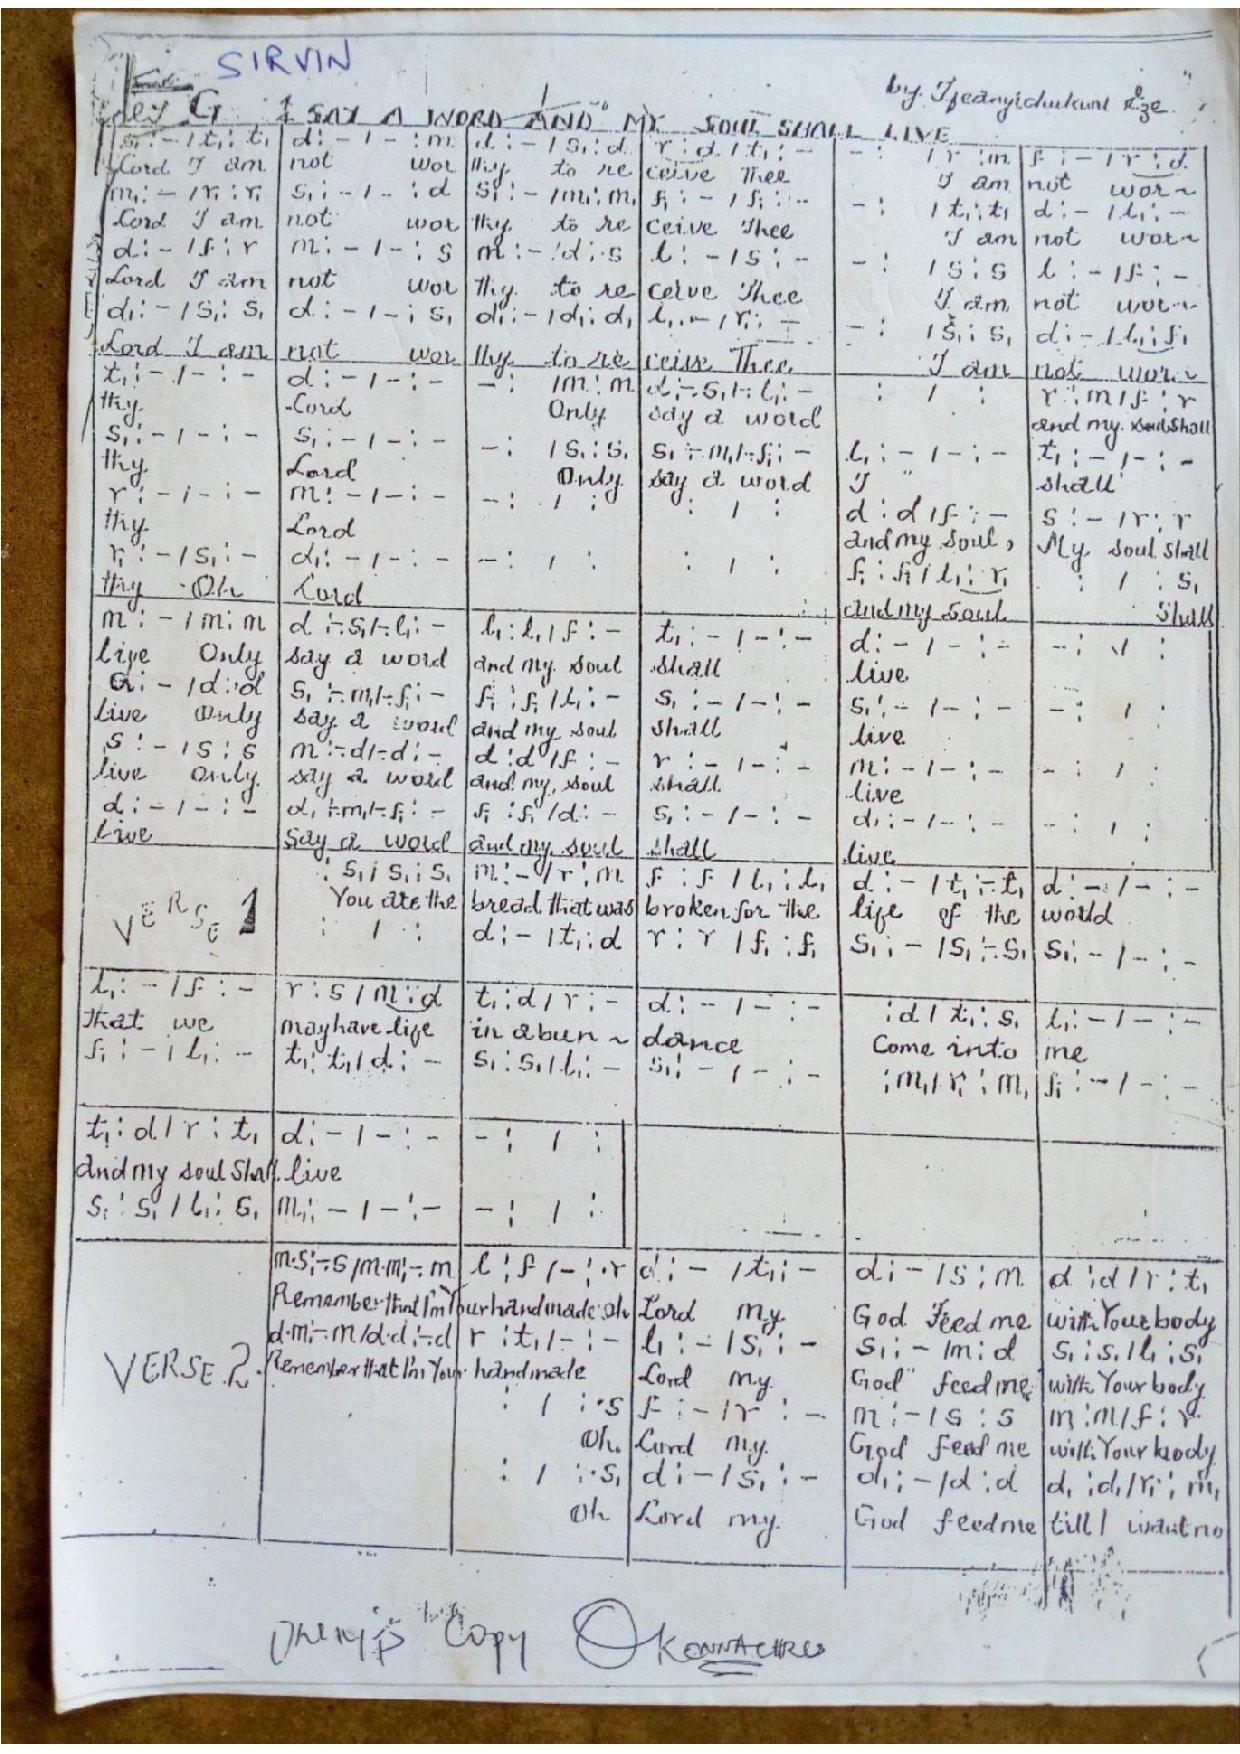 SIRVIN
by Ifeanyichukwu Eze
Key G I SAY A WORD AND MY SOUL SHALL LIVE
s₁ : - / t₁ : t₁ | d : - / - : m | d : - / s₁ : d | r : d / t₁ : - | - : / r : m | f : - / r : d
Lord I am | not wor | thy to re | ceive Thee | I am | not wor~
m₁ : - / r₁ : r₁ | s₁ : - / - : d | s₁ : - / m₁ : m₁ | f₁ : - / f₁ : - | - : / t₁ : t₁ | d : - / l₁ : -
Lord I am | not wor | thy to re | ceive Thee | I am | not wor~
d : - / f : r | m : - / - : s | m : - / d : s | l : - / s : - | - : / s : s | l : - / f : -
Lord I am | not wor | thy to re | ceive Thee | I am | not wor~
d₁ : - / s₁ : s₁ | d : - / - : s₁ | d₁ : - / d₁ : d₁ | l₁ : - / r₁ : - | - : / s₁ : s₁ | d : - / l₁ : f₁
Lord I am | not wor | thy to re | ceive Thee | I am | not wor~
t₁ : - / - : - | d : - / - : - | - : / m : m | d :- s₁ / - l₁ : - | : / : | r : m / f : r
thy | Lord | Only | say a word | and my soul shall
s₁ : - / - : - | s₁ : - / - : - | - : / s₁ : s₁ | s₁ :- m₁ /- f₁ : - | l₁ : - / - : - | t₁ : - / - : -
thy | Lord | Only | say a word | I | shall
r : - / - : - | m : - / - : - | - : / : | : / : | d : d / f : - | s : - / r : r
thy | Lord | and my soul, | My soul shall
r₁ : - / s₁ : - | d₁ : - / - : - | - : / : | : / : | f₁ : f₁ / l₁ : r₁ | : / : s₁
thy Oh | Lord | and my soul | shall
m : - / m : m | d :- s₁ /- l₁ : - | l₁ : l₁ / f : - | t₁ : - / - : - | d : - / - : - | - : / :
live Only | say a word | and my soul | shall | live
d : - / d : d | s₁ :- m₁ /- f₁ : - | f₁ : f₁ / l₁ : - | s₁ : - / - : - | s₁ : - / - : - | - : / :
live Only | say a word | and my soul | shall | live
s : - / s : s | m :- d /- d : - | d : d / f : - | r : - / - : - | m : - / - : - | - : / :
live Only | say a word | and my soul | shall | live
d : - / - : - | d₁ :- m₁ /- f₁ : - | f₁ : f₁ / d : - | s₁ : - / - : - | d₁ : - / - : - | - : / :
live | say a word | and my soul | shall | live
VERSE 1
: s₁ / s₁ : s₁ | m : - / r : m | f : f / l₁ : l₁ | d : - / t₁ :- t₁ | d : - / - : -
You are the | bread that was | broken for the | life of the | world
: / : | d : - / t₁ : d | r : r / f₁ : f₁ | s₁ : - / s₁ :- s₁ | s₁ : - / - : -
l₁ : - / f : - | r : s / m : d | t₁ : d / r : - | d : - / - : - | : d / t₁ : s₁ | l₁ : - / - : -
that we | may have life | in abun ~ | dance | Come into | me
f₁ : - / l₁ : - | t₁ : t₁ / d : - | s₁ : s₁ / l₁ : - | s₁ : - / - : - | : m₁ / r₁ : m₁ | f₁ : - / - : -
t₁ : d / r : t₁ | d : - / - : - | - : / :
and my soul shall | live
s₁ : s₁ / l₁ : s₁ | m₁ : - / - : - | - : / :
VERSE 2.
m.s :- s / m.m :- m | l : f / - : .r | d : - / t₁ : - | d : - / s : m | d : d / r : t₁
Remember that I'm | Your handmade oh | Lord my | God Feed me | with Your body
d.m :- m / d.d :- d | r : t₁ / - : - | l₁ : - / s₁ : - | s₁ : - / m : d | s₁ : s₁ / l₁ : s₁
Remember that I'm Your | handmade | Lord my | God feed me | with Your body
: / : .s | f : - / r : - | m : - / s : s | m : m / f : r
Oh | Lord my | God feed me | with Your body
: / : .s₁ | d : - / s₁ : - | d₁ : - / d : d | d₁ : d₁ / r₁ : m₁
Oh | Lord my | God feed me | till I want no
Copy